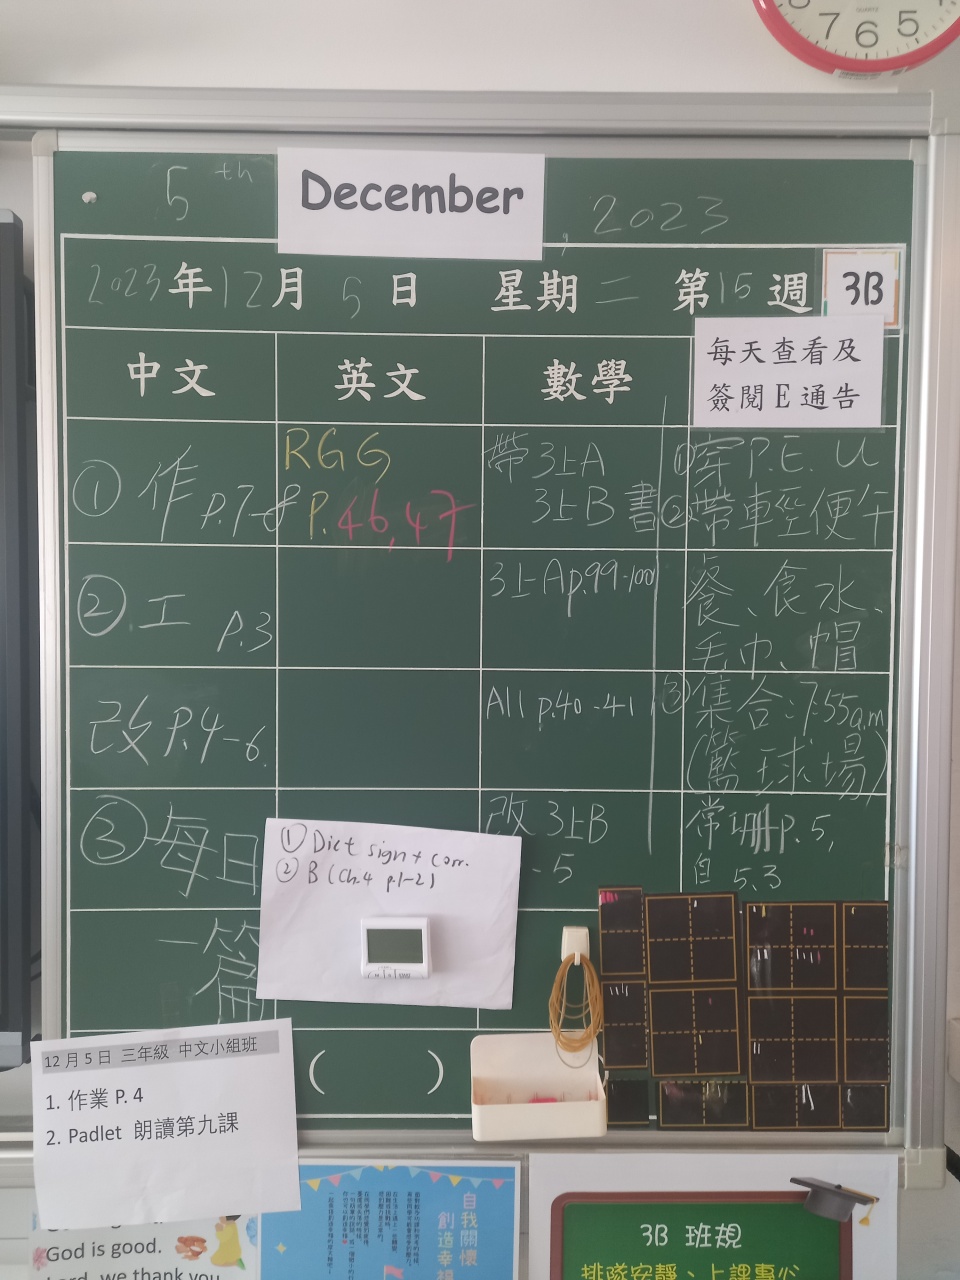 7 6 5
QUARTZ
5th December, 2023
2023年12月5日 星期二 第15週 3B
中文
英文
數學
每天查看及
簽閱E通告
① 作 P.7-8
② 工 P.3
改 P.4-6.
③ 每日
一篇
RGG
P. 46, 47
① Dict sign + corr.
② B (Ch.4 p.1-2)
帶 3上A
3上B 書
3上A p.99-100
All p.40-41
改 3上B
-5
① 穿 P.E. U
② 帶輕便午
餐、食水、
毛巾、帽
③ 集合:7:55a.m
(籃球場)
常 珊 P.5,
自 5.3
( )
12月5日 三年級 中文小組班
1. 作業 P.4
2. Padlet 朗讀第九課
God is good.
Lord, we thank you
自我關懷
創造幸福
3B 班規
排隊安靜、上課專心